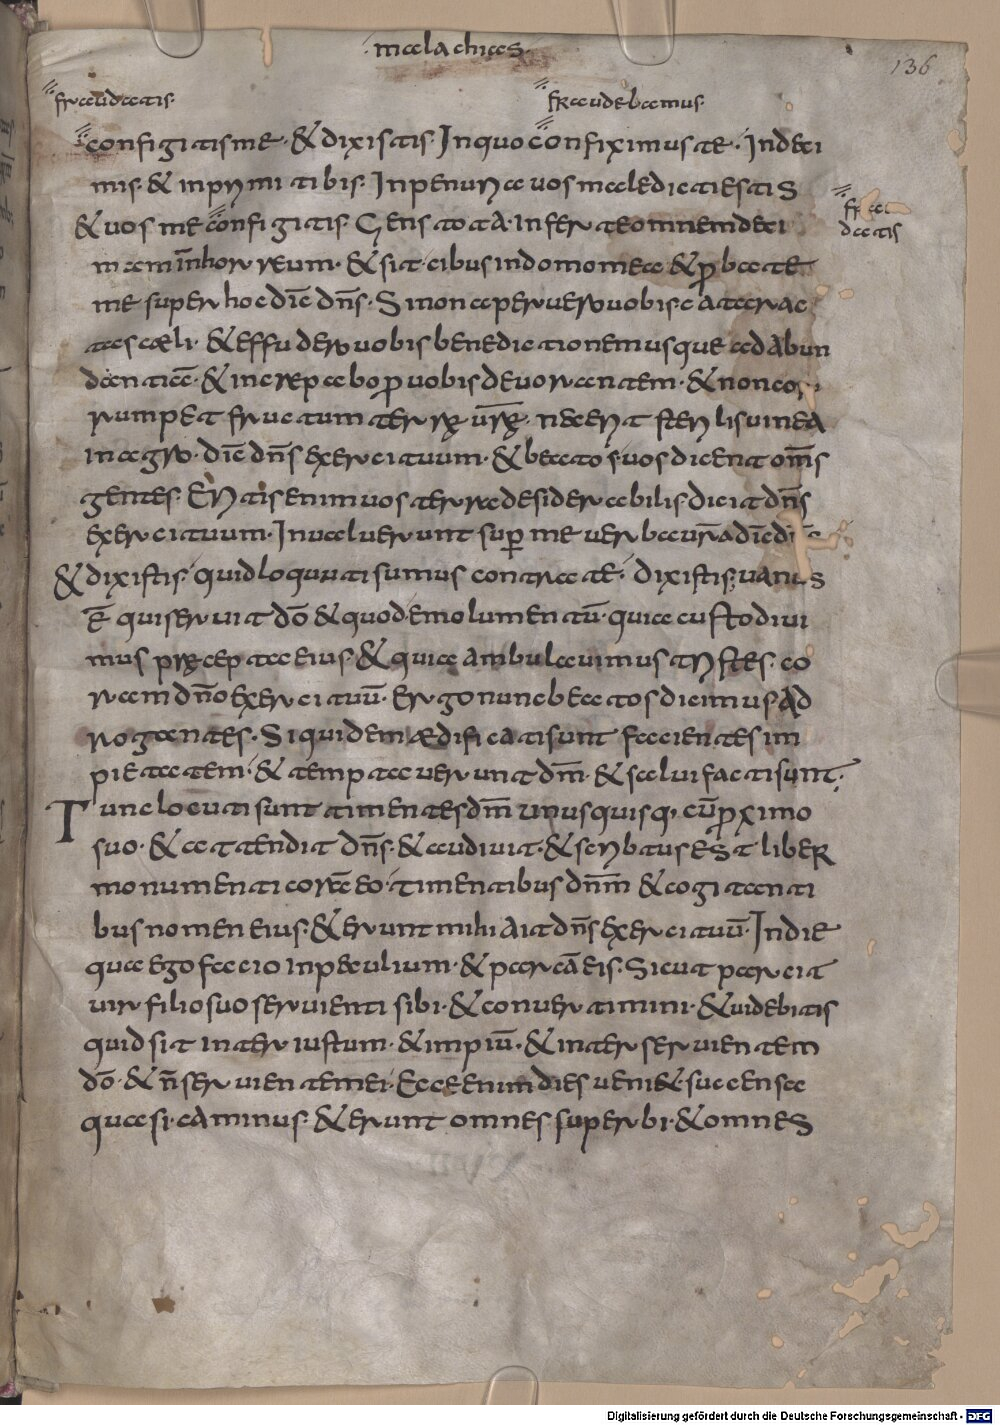 ·malachias·
136
fraudatis· fraudabemus·
configitis me· & dixistis· In quo confiximus te· In deci
mis· & in primitibis· In penuria vos maledicti estis
& vos me configitis· Gens tota· inferte omnem deci
datis
mam in horreum· & sit cibus in domo mea & ꝓbate
me super hoc diē dn̄s· Si non aperuero vobis catarac
tas cæli· & effudero vobis benedictionem usque ad abun
dantiā· & increpabo ꝓ vobis devorantem· & non cor
rumpet fructum terrę vr̄ę· nec erit sterilis vinea
in agro· diē dn̄s exercituum· & beatos vos dicent om̄s
gentes· Eritis enim vos terra desiderabilis dicit dn̄s
exercituum· Invaluerunt suꝑ me verba vr̄a diē dn̄s
& dixistis· quid loquuti sumus contra te· dixistis· vanus
ē qui servit dō & quod emolumentū· quia custodivi
mus pręcepta eius· & quia ambulavimus tristes· co
ram dn̄o exercituū· Ergo nunc beatos dicimus ad
rogantes· Siquidem ædificati sunt facientes im
pietatem· & temptaverunt dm̄· & salvi facti sunt·
Tunc locuti sunt timentes dm̄ unusquisq; cū ꝓximo
suo· & attendit dn̄s· & audivit· & scribtus est liber
monumenti corā eo· timentibus dn̄m & cogitanti
bus nomen eius· & erunt mihi ait dn̄s exercituū· In die
qua ego facio in peculium· & parcā eis· Sicut parcit
vir filio suo servienti sibi· & convertimini· & videbitis
quid sit inter iustum· & impiū· & inter servientem
dō· & n̄ servientem ei· Ecce enim dies veni& succensa
quasi caminus· & erunt omnes superbi· & omnes
Digitalisierung gefördert durch die Deutsche Forschungsgemeinschaft - DFG